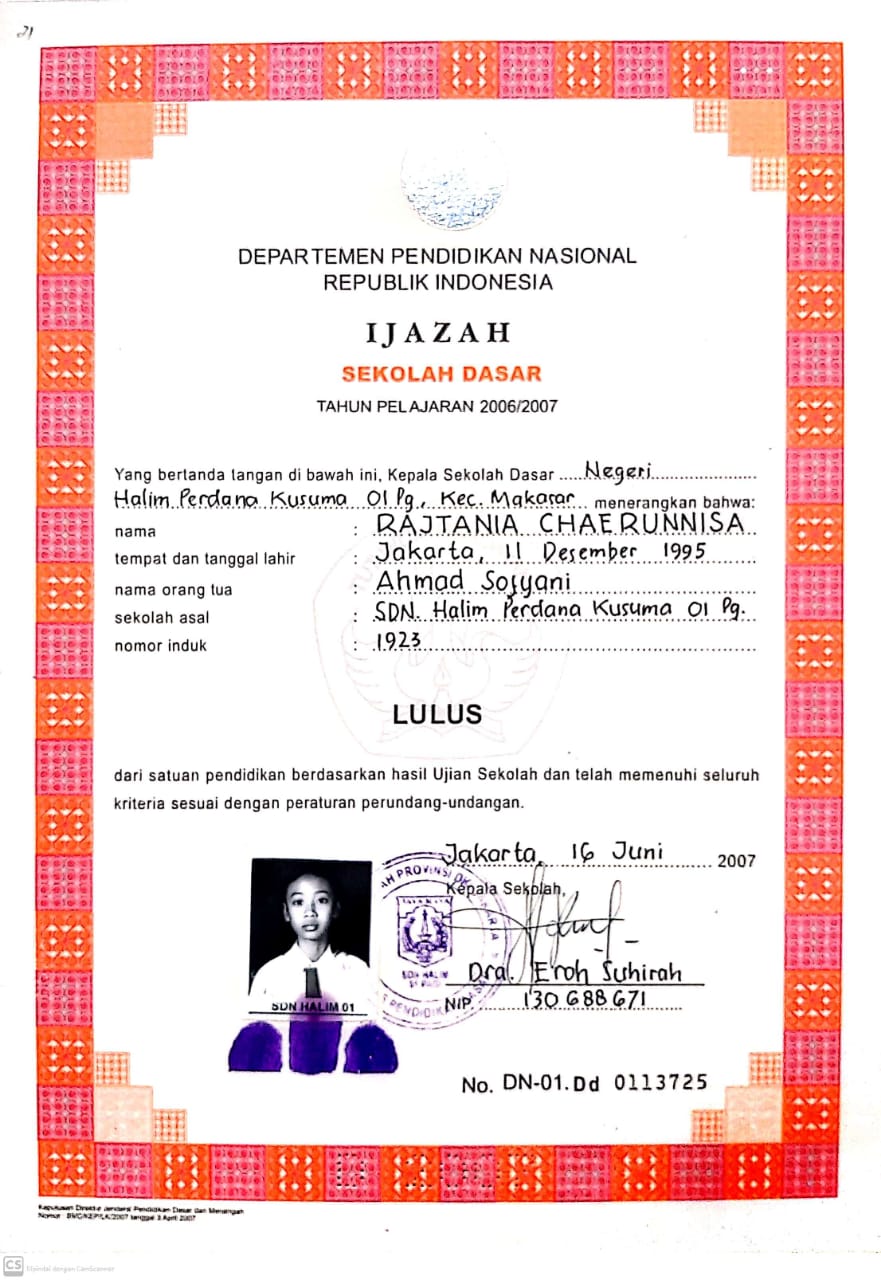 21
DEPARTEMEN PENDIDIKAN NASIONAL
REPUBLIK INDONESIA
IJAZAH
SEKOLAH DASAR
TAHUN PELAJARAN 2006/2007
Yang bertanda tangan di bawah ini, Kepala Sekolah Dasar Negeri
Halim Perdana Kusuma 01 Pg., Kec. Makasar menerangkan bahwa:
nama : RAJTANIA CHAERUNNISA
tempat dan tanggal lahir : Jakarta, 11 Desember 1995
nama orang tua : Ahmad Sofyani
sekolah asal : SDN. Halim Perdana Kusuma 01 Pg.
nomor induk : 1923
LULUS
dari satuan pendidikan berdasarkan hasil Ujian Sekolah dan telah memenuhi seluruh
kriteria sesuai dengan peraturan perundang-undangan.
Jakarta, 16 Juni 2007
Kepala Sekolah,
JAYA RAYA
SDN HALIM
Dra. Eroh Suhirah
NIP. 130688671
SDN HALIM 01
No. DN-01.Dd 0113725
Keputusan Direktur Jenderal Pendidikan Dasar dan Menengah
tanggal 3 April 2007
CS Dipindai dengan CamScanner